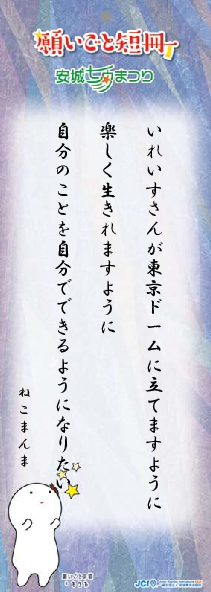 願いごと短冊
安城七夕まつり
いれいすさんが東京ドームに立てますように
楽しく生きれますように
自分のことを自分でできるようになりたい
ねこまんま
願いごと短冊
JCI